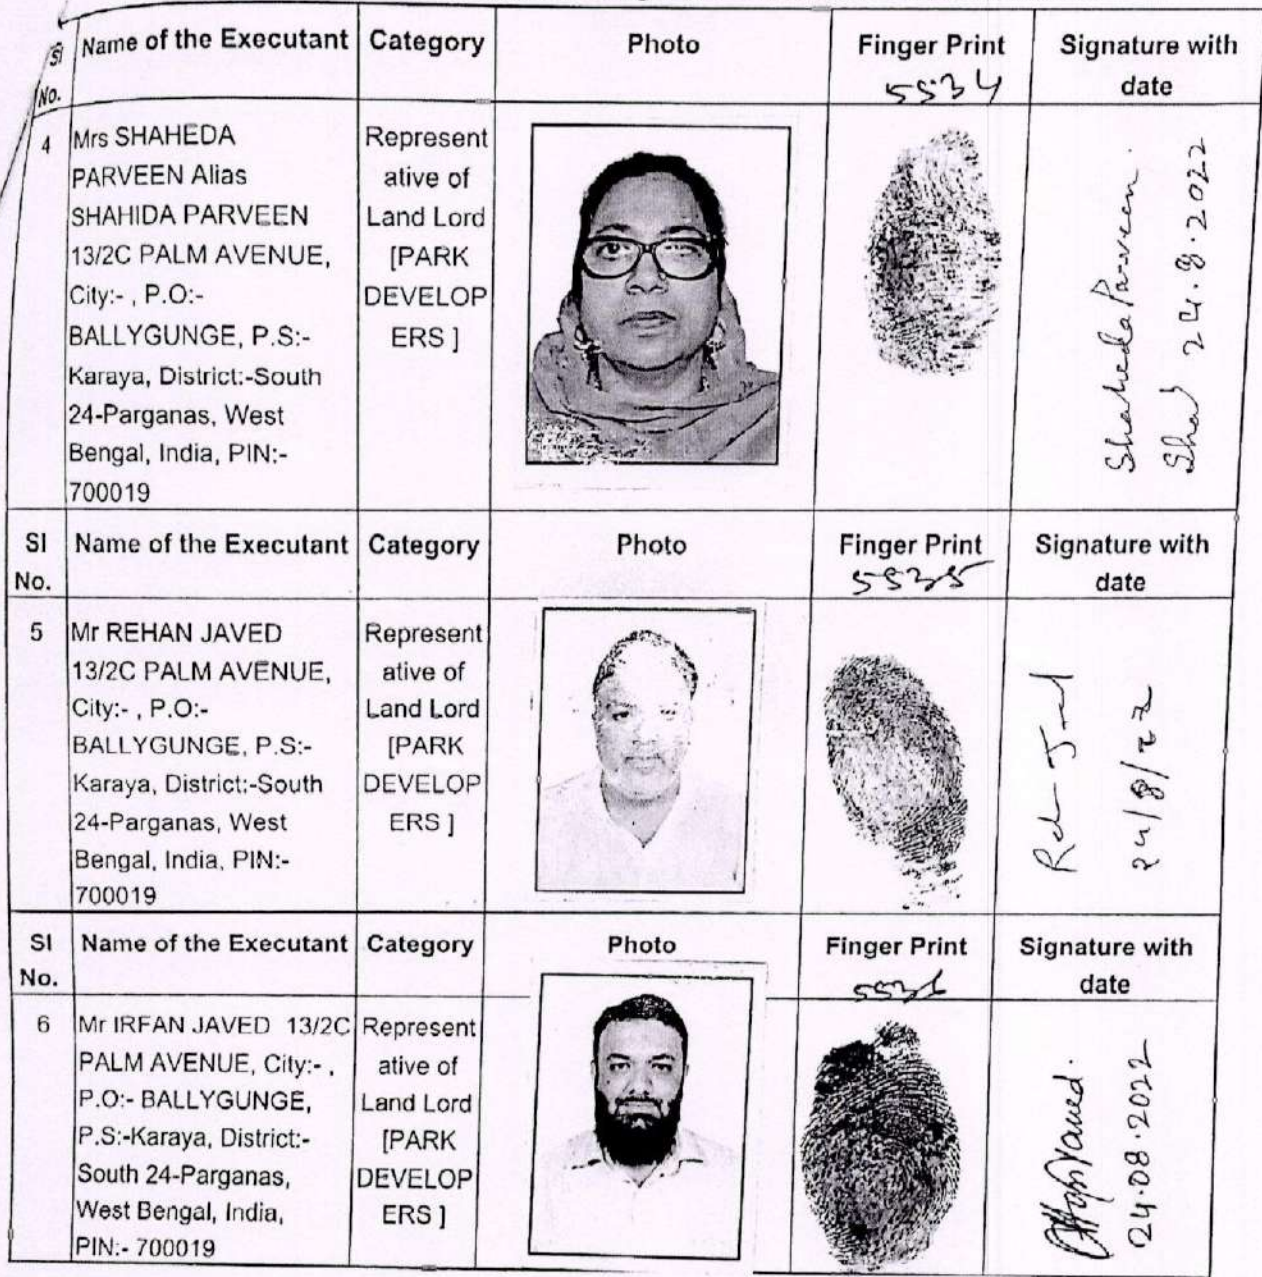 Sl No.
Name of the Executant
Category
Photo
Finger Print
5534
Signature with
date
4
Mrs SHAHEDA
PARVEEN Alias
SHAHIDA PARVEEN
13/2C PALM AVENUE,
City:- , P.O:-
BALLYGUNGE, P.S:-
Karaya, District:-South
24-Parganas, West
Bengal, India, PIN:-
700019
Represent
ative of
Land Lord
[PARK
DEVELOP
ERS ]
Shaheda Parveen.
24.8.2022
Sl
No.
Name of the Executant
Category
Photo
Finger Print
5535
Signature with
date
5
Mr REHAN JAVED
13/2C PALM AVENUE,
City:- , P.O:-
BALLYGUNGE, P.S:-
Karaya, District:-South
24-Parganas, West
Bengal, India, PIN:-
700019
Represent
ative of
Land Lord
[PARK
DEVELOP
ERS ]
24/8/22
Sl
No.
Name of the Executant
Category
Photo
Finger Print
5536
Signature with
date
6
Mr IRFAN JAVED 13/2C
PALM AVENUE, City:- ,
P.O:- BALLYGUNGE,
P.S:-Karaya, District:-
South 24-Parganas,
West Bengal, India,
PIN:- 700019
Represent
ative of
Land Lord
[PARK
DEVELOP
ERS ]
24.08.2022